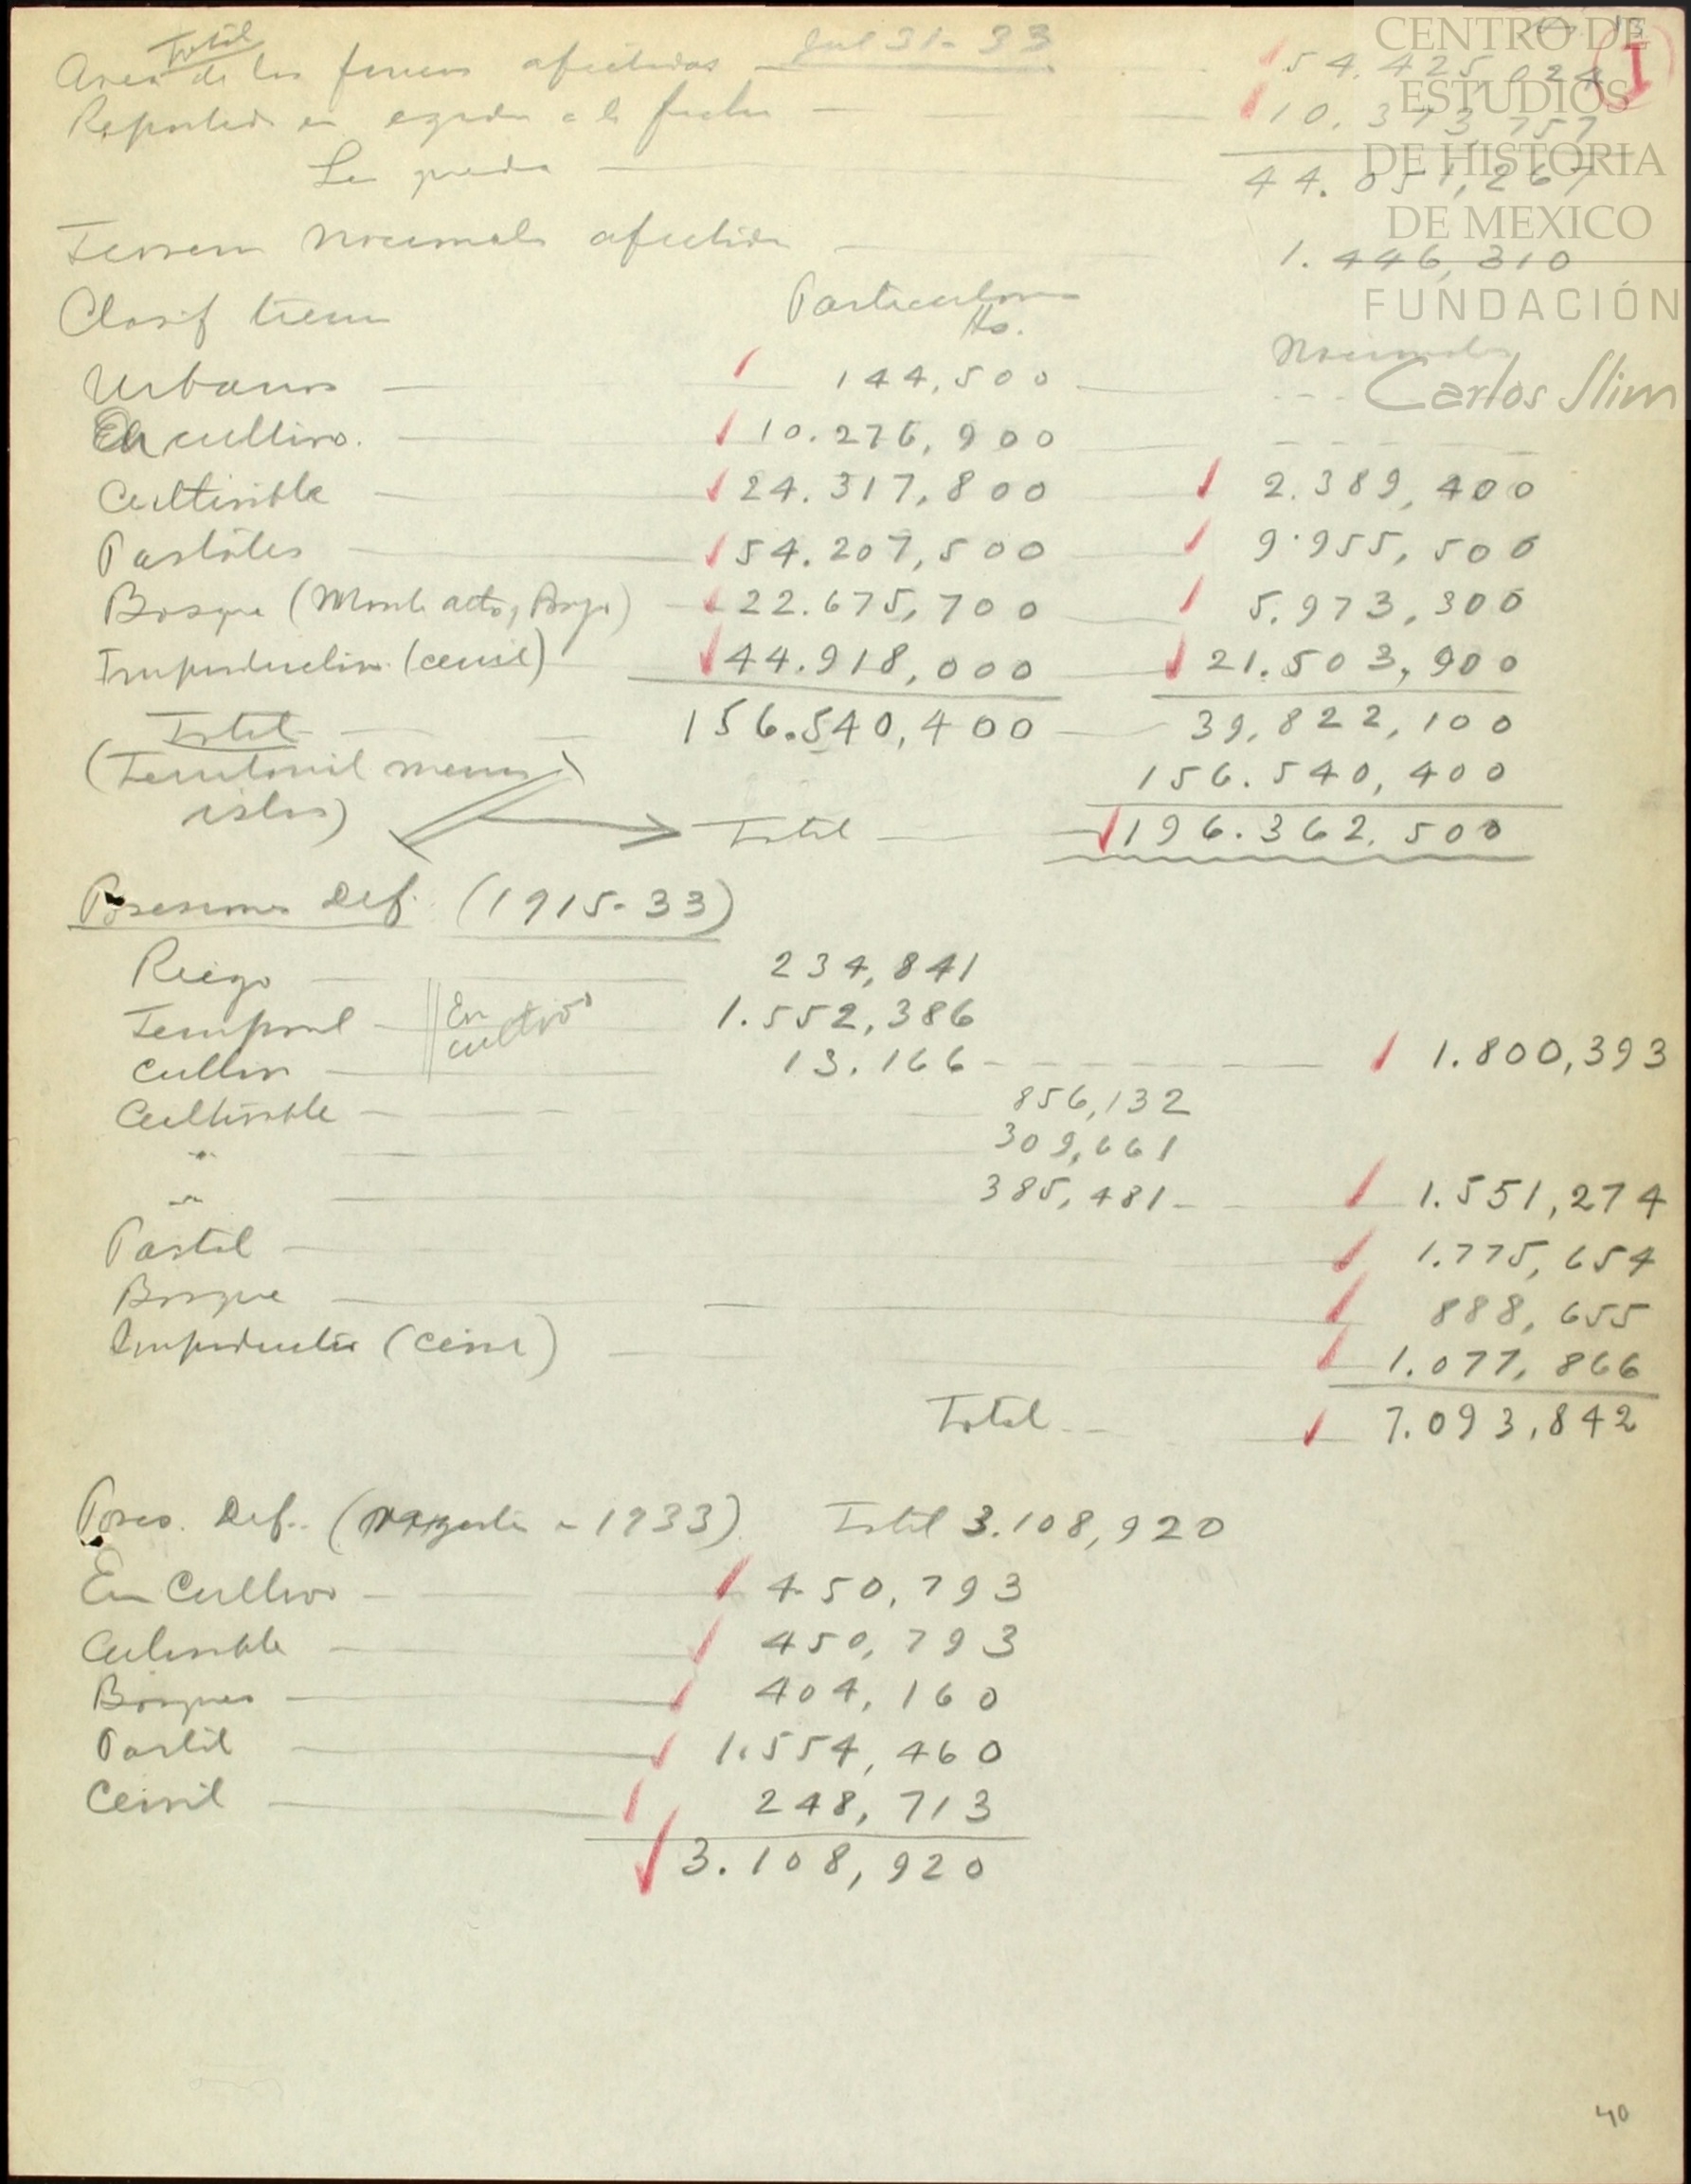 Total Jul 31-33
Area de las fincas afectadas 54.425,024
I
Repartido en egidos a la fecha — 10.373,757
Le queda — 44.051,267
Terrenos Nacionales afectados — 1.446,310
Clasif tierras Particulares Nacionales
Hs.
Urbanos — 144,500 — - - -
En cultivo. — 10.276,900 - - - - - -
Cultivible — 24.317,800 — 2.389,400
Pastales — 54.207,500 — 9.955,500
Bosque (Monte alto y Bajo) — 22.675,700 — 5.973,300
Improductivo (cerril) 44.918,000 — 21.503,900
Total — 156.540,400 — 39,822,100
(Territorial menos 156.540,400
islas) Total — 196.362.500
Posesiones Def. (1915-33)
Riego — 234,841
Temporal — En 1.552,386
cultivo
Cultivo — 13.166 - - - - - 1.800,393
Cultivible — 856,132
" — 309,661
" — 385,481 - 1.551,274
Pastal — 1.775,654
Bosque — 888,655
Improductivo (Cerril) — 1.077,866
Total - - 7.093,842
Poses. Def. ( 1933) Total 3.108,920
En Cultivo — 450,793
Cultivible — 450,793
Bosques — 404,160
Pastal — 1.554,460
Cerril — 248,713
3.108,920
40
CENTRO DE
ESTUDIOS
DE HISTORIA
DE MEXICO
FUNDACIÓN
Carlos Slim